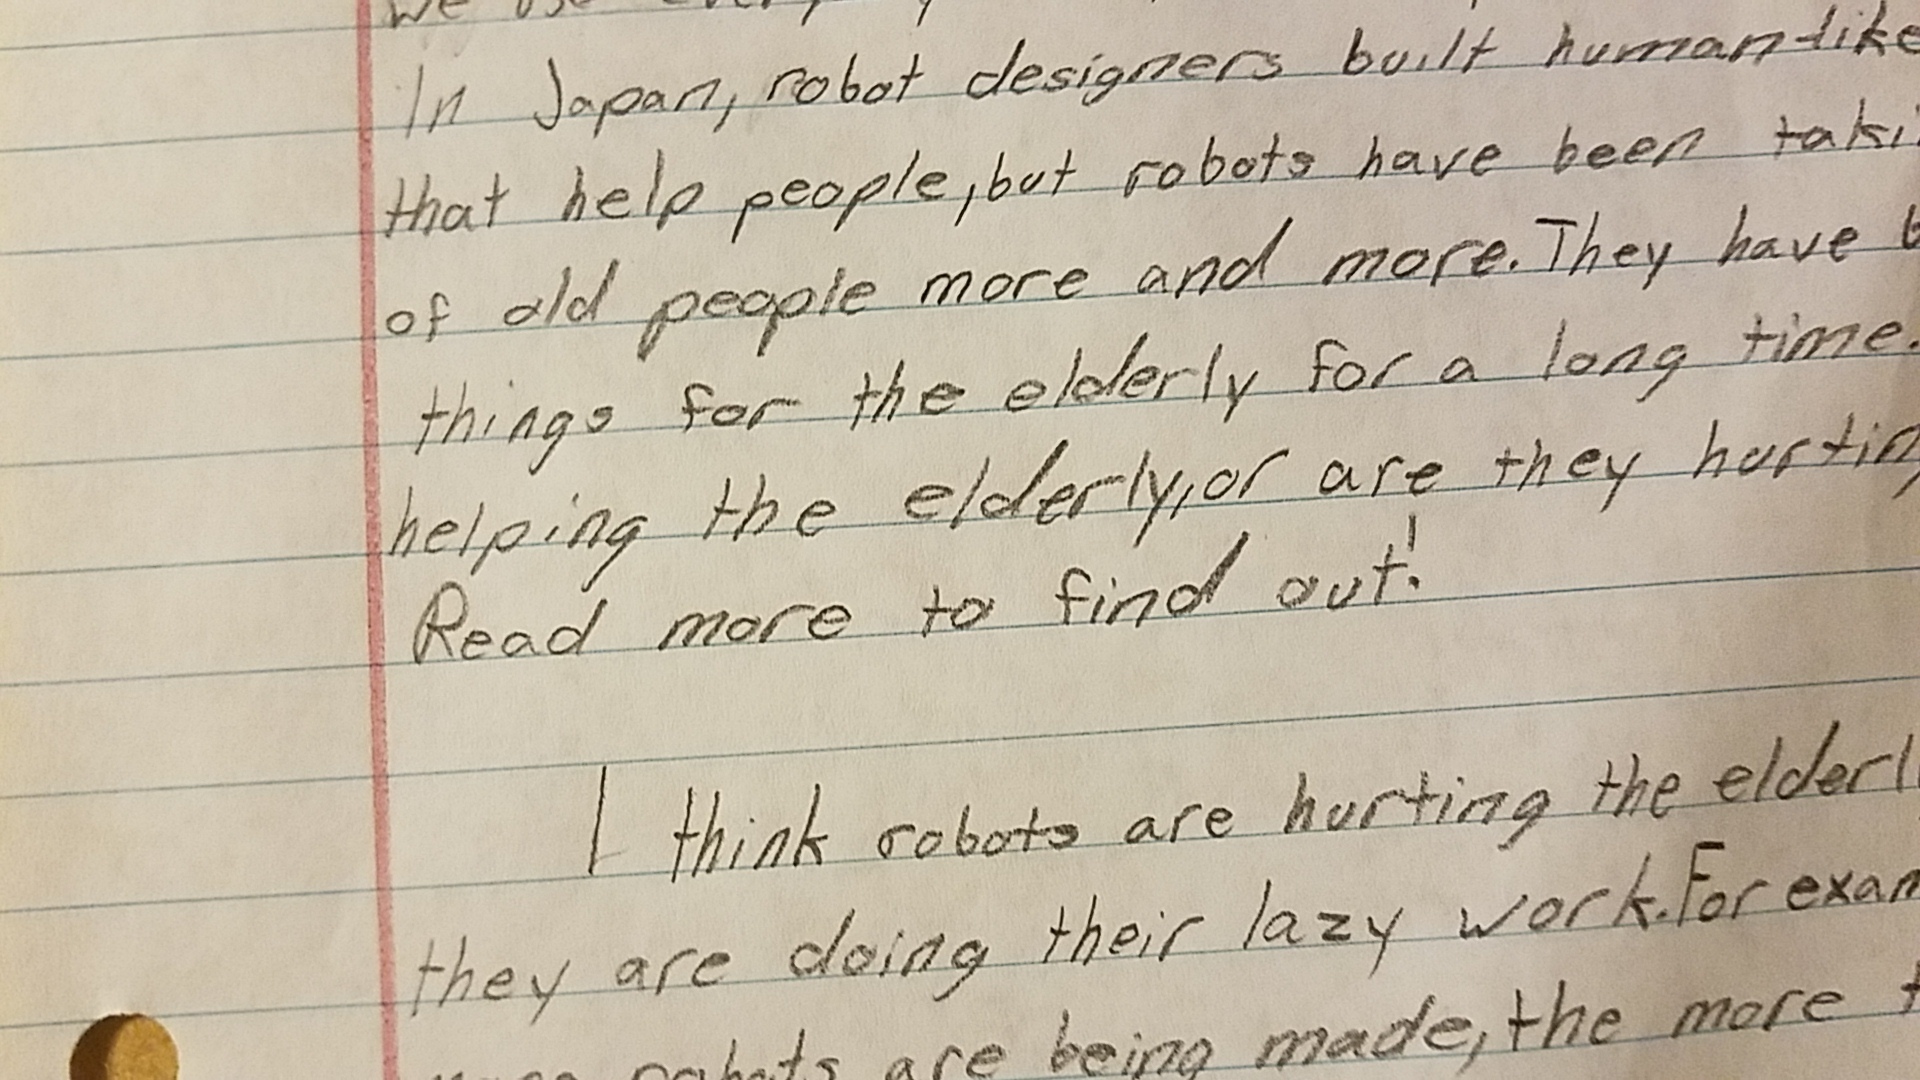 we use
In Japan, robot designers built human-like
that help people, but robots have been
of old people more and more. They have
things for the elderly for a long time.
helping the elderly, or are they
Read more to find out!
I think robots are hurting the
they are doing their lazy work. For
robots are being made, the more